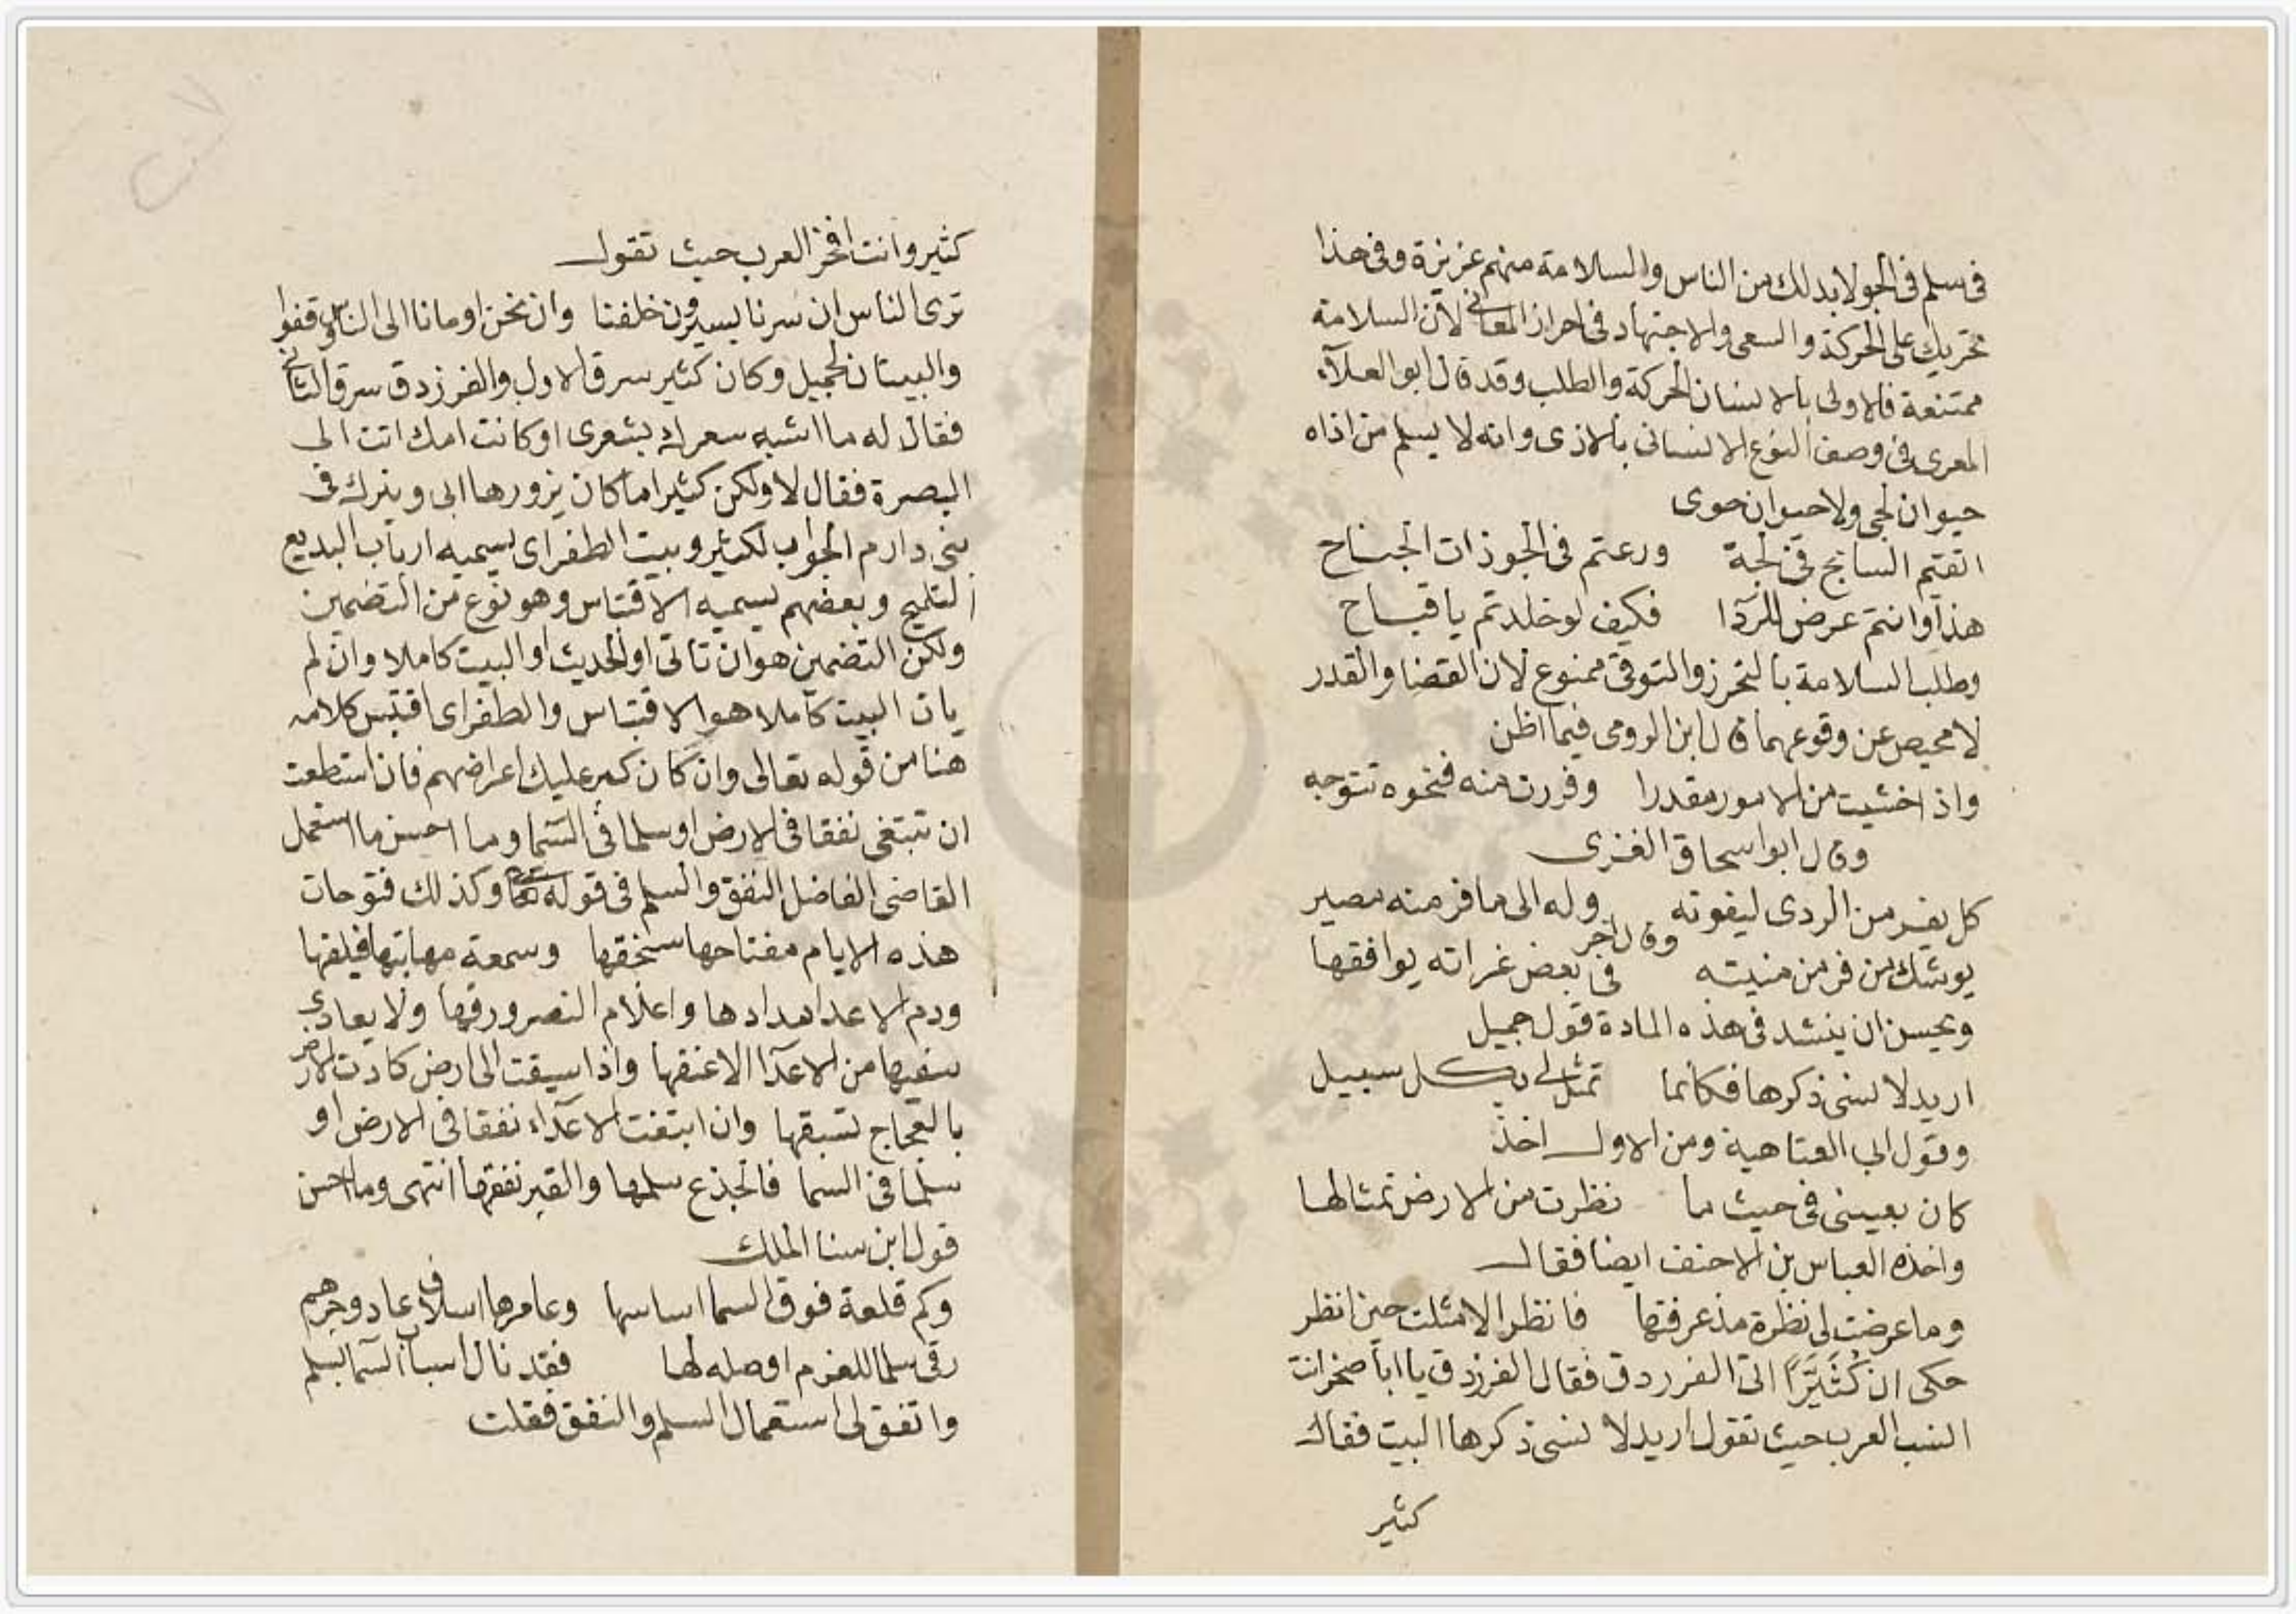 فى سلم فى الجو لابد لك من الناس والسلامة منهم عزيزة وفى هذا
تحريك على الحركة والسعى والاجتهاد فى احراز المعانى لان السلامة
ممتنعة فالاولى بالانسان الحركة والطلب وقد قال ابو العلاء
المعرى فى وصف النوع الانسانى بالاذى وانه لا يسلم من اذاه
حيوان لجى ولا حيوان جوى
القيتم السابح فى لجة ورعتم فى الجو ذات الجناح
هذا وانتم عرض للردا فكيف لو خلدتم يا قباح
وطلب السلامة بالتحرز والتوقى ممنوع لان القضا والقدر
لا محيص عن وقوعهما قال ابن الرومى فيما اظن
واذا خشيت من الامور مقدرا وفررت منه فنحوه تتوجه
وقال ابو اسحاق الغزى
كل يفر من الردى ليفوته وله الى ما فر منه مصير
وقال اخر
يوشك من فر من منيته فى بعض غراته يوافقها
ويحسن ان ينشد فى هذه المادة قول جميل
اريد لا نسى ذكرها فكانما تمثل لى بكل سبيل
وقول ابى العتاهية ومن الاول اخذ
كان بعينى فى حيث ما نظرت من الارض تمثالها
واخذه العباس بن الاحنف ايضا فقال
وما عرضت لى نظرة مذ عرفتها فانظر الا مثلت حين انظر
حكى ان كُثَيِّرًا اتى الفرزدق فقال الفرزدق يا ابا صخر انت
انسب العرب حيث تقول اريد لا نسى ذكرها البيت فقال
كثير
كثير وانت افخر العرب حيث تقول
ترى الناس ان سرنا يسيرون خلفنا وان نحن اومانا الى الناس وقفوا
والبيتان لجميل وكان كثير سرق الاول والفرزدق سرق الثانى
فقال له ما اشبه سعرك بشعرى اوكانت امك اتت الى
البصرة فقال لا ولكن كثيرا ما كان يزورها ابى وينزل فى
بنى دارم الجواب لكثير وبيت الطغراى يسميه ارباب البديع
التلميح وبعضهم يسميه الاقتباس وهو نوع من التضمين
ولكن التضمين هو ان تاتى او الحديث او البيت كاملا وان لم
يات البيت كاملا هو الاقتباس والطغراى اقتبس كلامه
هنا من قوله تعالى وان كان كبر عليك اعراضهم فان استطعت
ان تبتغى نفقا فى الارض او سلما فى السما وما احسن ما استعمل
القاضى الفاضل النفق والسلم فى قوله وكذلك فتوحات
هذه الايام مفتاحها سنخقها وسمعة مهابتها فيلقها
ودم الاعدا مدادها واعلام النصر ورقها ولا يعادى
سفيها من الاعدا الا عنقها واذا سيقت الى ارض كادت الارض
بالعجاج تسبقها وان ابتغت الاعداء نفقا فى الارض او
سلما فى السما فالجذع سلمها والقبر نفقها انتهى وما احسن
قول ابن سنا الملك
وكم قلعة فوق السما اساسها وعامرها اسلاف عاد وجرهم
رقى سلما للعزم اوصله لها فقد نال اسباب السما بسلم
واتفق لى استعمال السلم والنفق فقلت